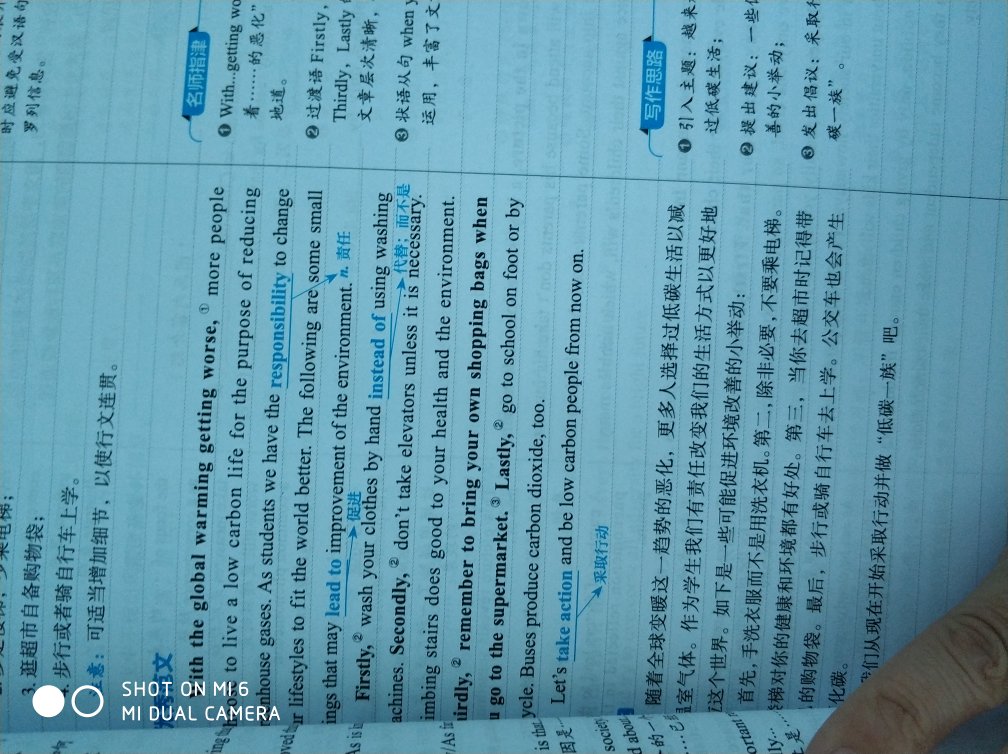 时应避免受汉语句
罗列信息。
3. 逛超市自备购物袋；
4. 步行或者骑自行车上学。
意：可适当增加细节，以使行文连贯。
With the global warming getting worse,① more people
to live a low carbon life for the purpose of reducing
gases. As students we have the responsibility to change
lifestyles to fit the world better. The following are some small
ings that may lead to improvement of the environment. n. 责任
促进
Firstly,② wash your clothes by hand instead of using washing
achines. Secondly,② don't take elevators unless it is necessary.
代替；而不是
imbing stairs does good to your health and the environment.
irdly,② remember to bring your own shopping bags when
u go to the supermarket.③ Lastly,② go to school on foot or by
ycle. Buses produce carbon dioxide, too.
Let's take action and be low carbon people from now on.
采取行动
随着全球变暖这一趋势的恶化，更多人选择过低碳生活以减
室气体。作为学生我们有责任改变我们的生活方式以更好地
这个世界。如下是一些可能促进环境改善的小举动：
首先，手洗衣服而不是用洗衣机。第二，除非必要，不要乘电梯。
梯对你的健康和环境都有好处。第三，当你去超市时记得带
的购物袋。最后，步行或骑自行车去上学。公交车也会产生
化碳。
们从现在开始采取行动并做“低碳一族”吧。
名师指津
❶ With...getting wo
着……的恶化”
地道。
❷ 过渡语 Firstly,
Thirdly, Lastly
文章层次清晰，
❸ 状语从句 when y
运用，丰富了文
写作思路
❶ 引入主题：越来
过低碳生活；
❷ 提出建议：一些
善的小举动；
❸ 发出倡议：采取
碳一族”。
SHOT ON MI 6
MI DUAL CAMERA